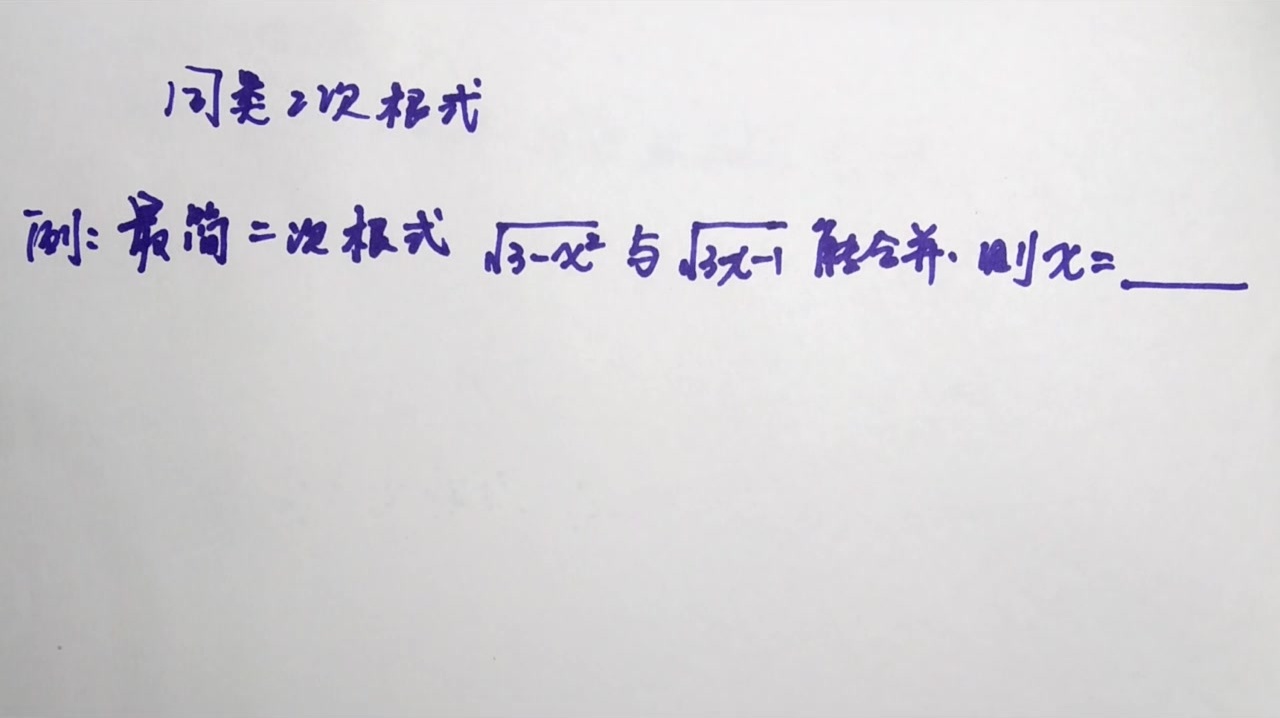 同类二次根式
例：最简二次根式 √(3-x²) 与 √(3x-1) 能合并. 则x=____